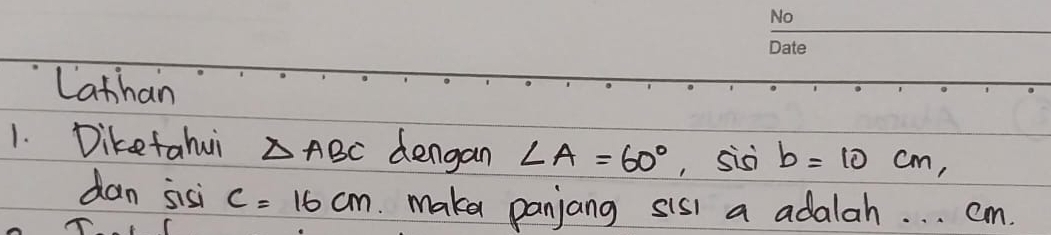 No
Date
Latihan
1. Diketahui △ ABC dengan ∠A = 60°, sisi b = 10 cm,
dan sisi c = 16 cm. maka panjang sisi a adalah ... cm.